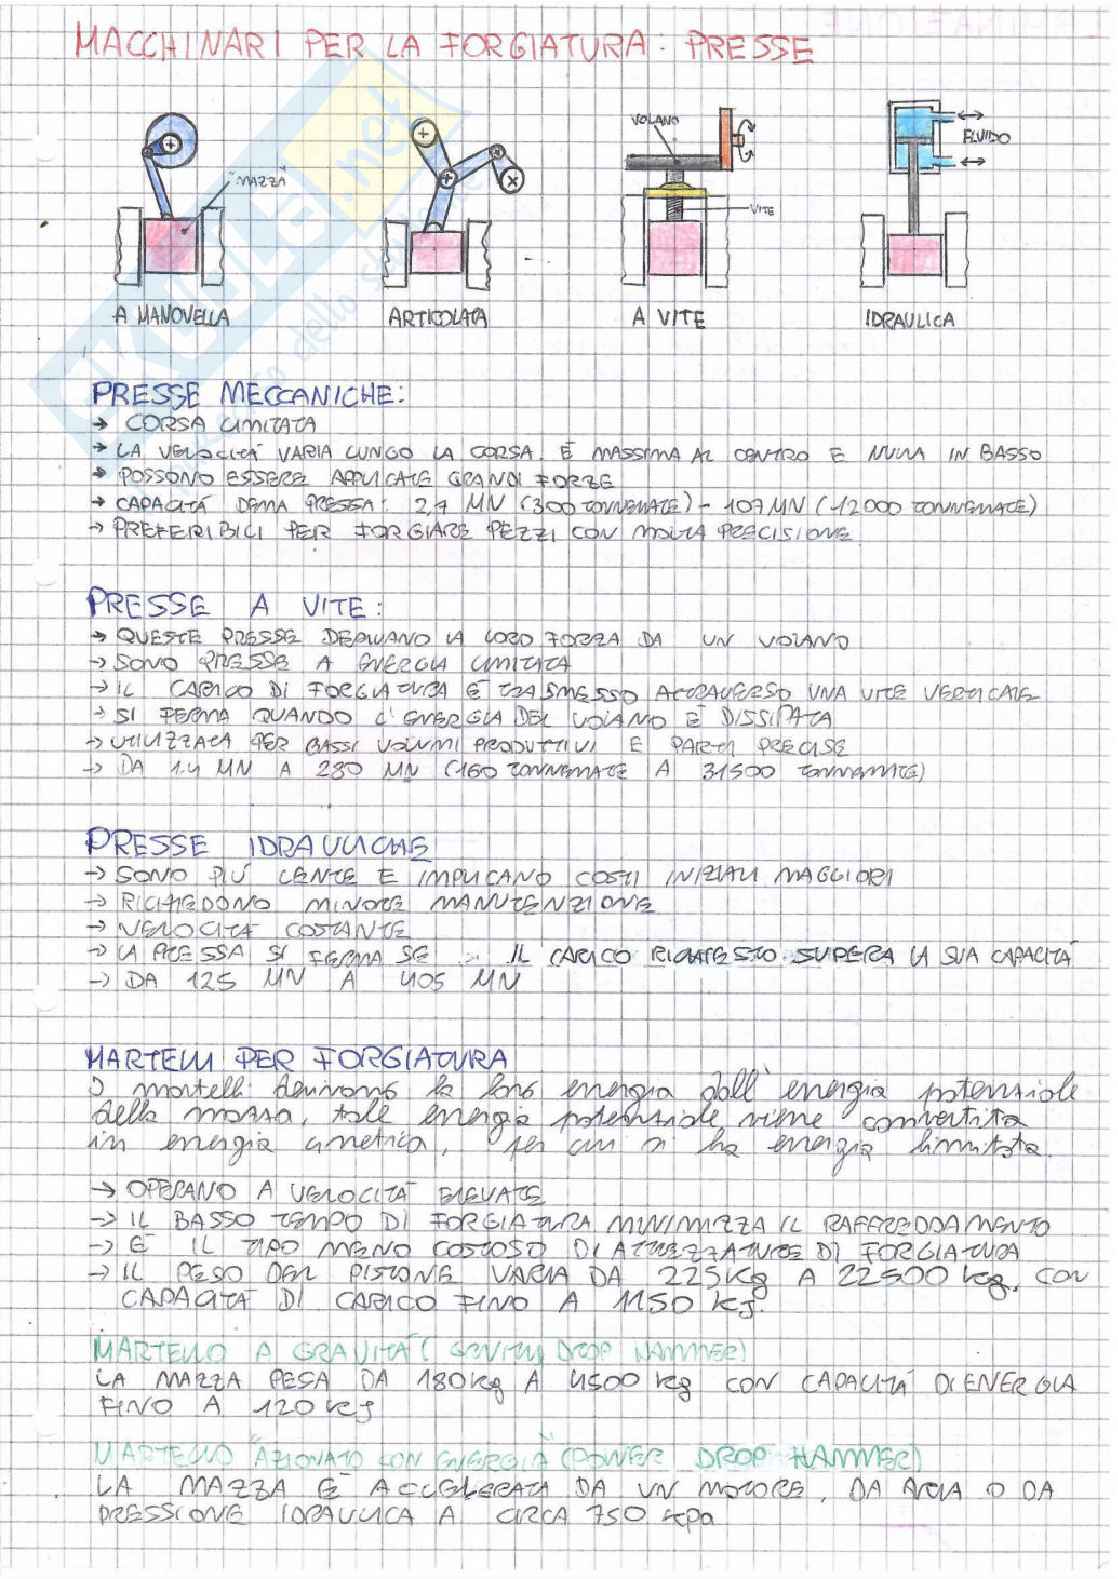 MACCHINARI PER LA FORGIATURA: PRESSE
VOLANO
FLUIDO
"MAZZA"
VITE
A MANOVELLA
ARTICOLATA
A VITE
IDRAULICA
PRESSE MECCANICHE:
→ CORSA LIMITATA
→ LA VELOCITÀ VARIA LUNGO LA CORSA. È MASSIMA AL CENTRO E NULLA IN BASSO
→ POSSONO ESSERE APPLICATE GRANDI FORZE
→ CAPACITÀ DELLA PRESSA: 2,7 MN (300 TONNELLATE) - 107 MN (12000 TONNELLATE)
→ PREFERIBILI PER FORGIARE PEZZI CON MOLTA PRECISIONE
PRESSE A VITE:
→ QUESTE PRESSE DERIVANO LA LORO FORZA DA UN VOLANO
→ SONO PRESSE A ENERGIA LIMITATA
→ IL CARICO DI FORGIATURA È TRASMESSO ATTRAVERSO UNA VITE VERTICALE
→ SI FERMA QUANDO L'ENERGIA DEL VOLANO È DISSIPATA
→ UTILIZZATA PER BASSI VOLUMI PRODUTTIVI E PARTI PRECISE
→ DA 1.4 MN A 280 MN (160 TONNELLATE A 31500 TONNELLATE)
PRESSE IDRAULICHE
→ SONO PIÙ LENTE E IMPLICANO COSTI INIZIALI MAGGIORI
→ RICHIEDONO MINORE MANUTENZIONE
→ VELOCITÀ COSTANTE
→ LA PRESSA SI FERMA SE IL CARICO RICHIESTO SUPERA LA SUA CAPACITÀ
→ DA 125 MN A 405 MN
MARTELLI PER FORGIATURA
I martelli derivano la loro energia dall'energia potenziale
della massa, tale energia potenziale viene convertita
in energia cinetica, per cui si ha energia limitata.
→ OPERANO A VELOCITÀ ELEVATE
→ IL BASSO TEMPO DI FORGIATURA MINIMIZZA IL RAFFREDDAMENTO
→ È IL TIPO MENO COSTOSO DI ATTREZZATURE DI FORGIATURA
→ IL PESO DEL PISTONE VARIA DA 225Kg A 22500 kg, CON
CAPACITÀ DI CARICO FINO A 1150 KJ.
MARTELLO A GRAVITÀ (GRVITY DROP HAMMER)
LA MAZZA PESA DA 180Kg A 4500 kg CON CAPACITÀ DI ENERGIA
FINO A 120 KJ
MARTELLO "AZIONATO CON ENERGIA" (POWER DROP HAMMER)
LA MAZZA È ACCELERATA DA UN MOTORE, DA ARIA O DA
PRESSIONE IDRAULICA A CIRCA 750 kPa